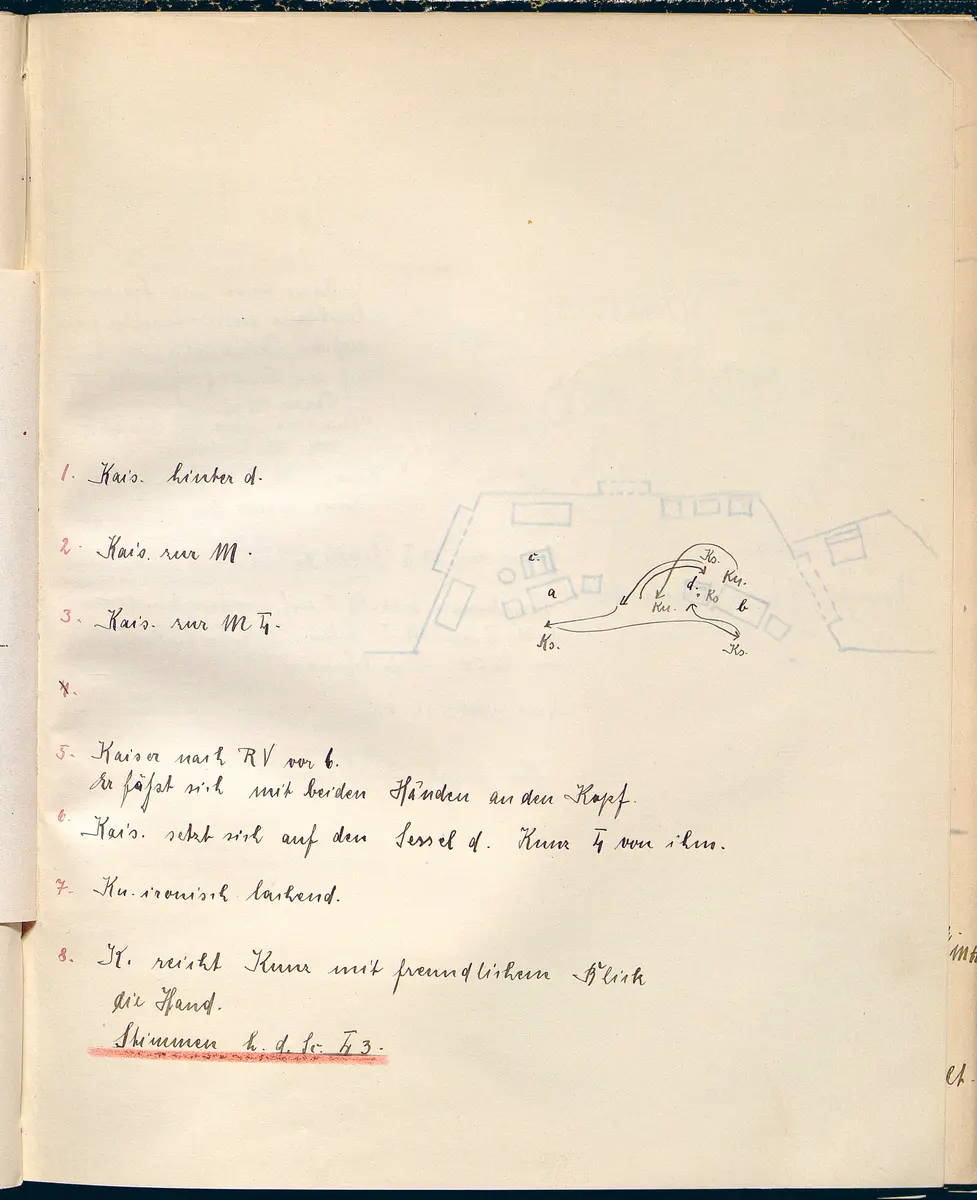 1. Kais. hinter d.
2. Kais. zur M.
3. Kais. zur M
4.
5. Kaiser nach RV vor b.
Er faßt sich mit beiden Händen an den Kopf.
6. Kais. setzt sich auf den Sessel d. Kunz von ihm.
7. Ku. ironisch lachend.
8. K. reicht Kunz mit freundlichem Blick
die Hand.
Stimmen h. d. Sc. 3.
c.
a
Ks.
Ks.
Ku.
d.
Ks
Ku.
b
Ks.